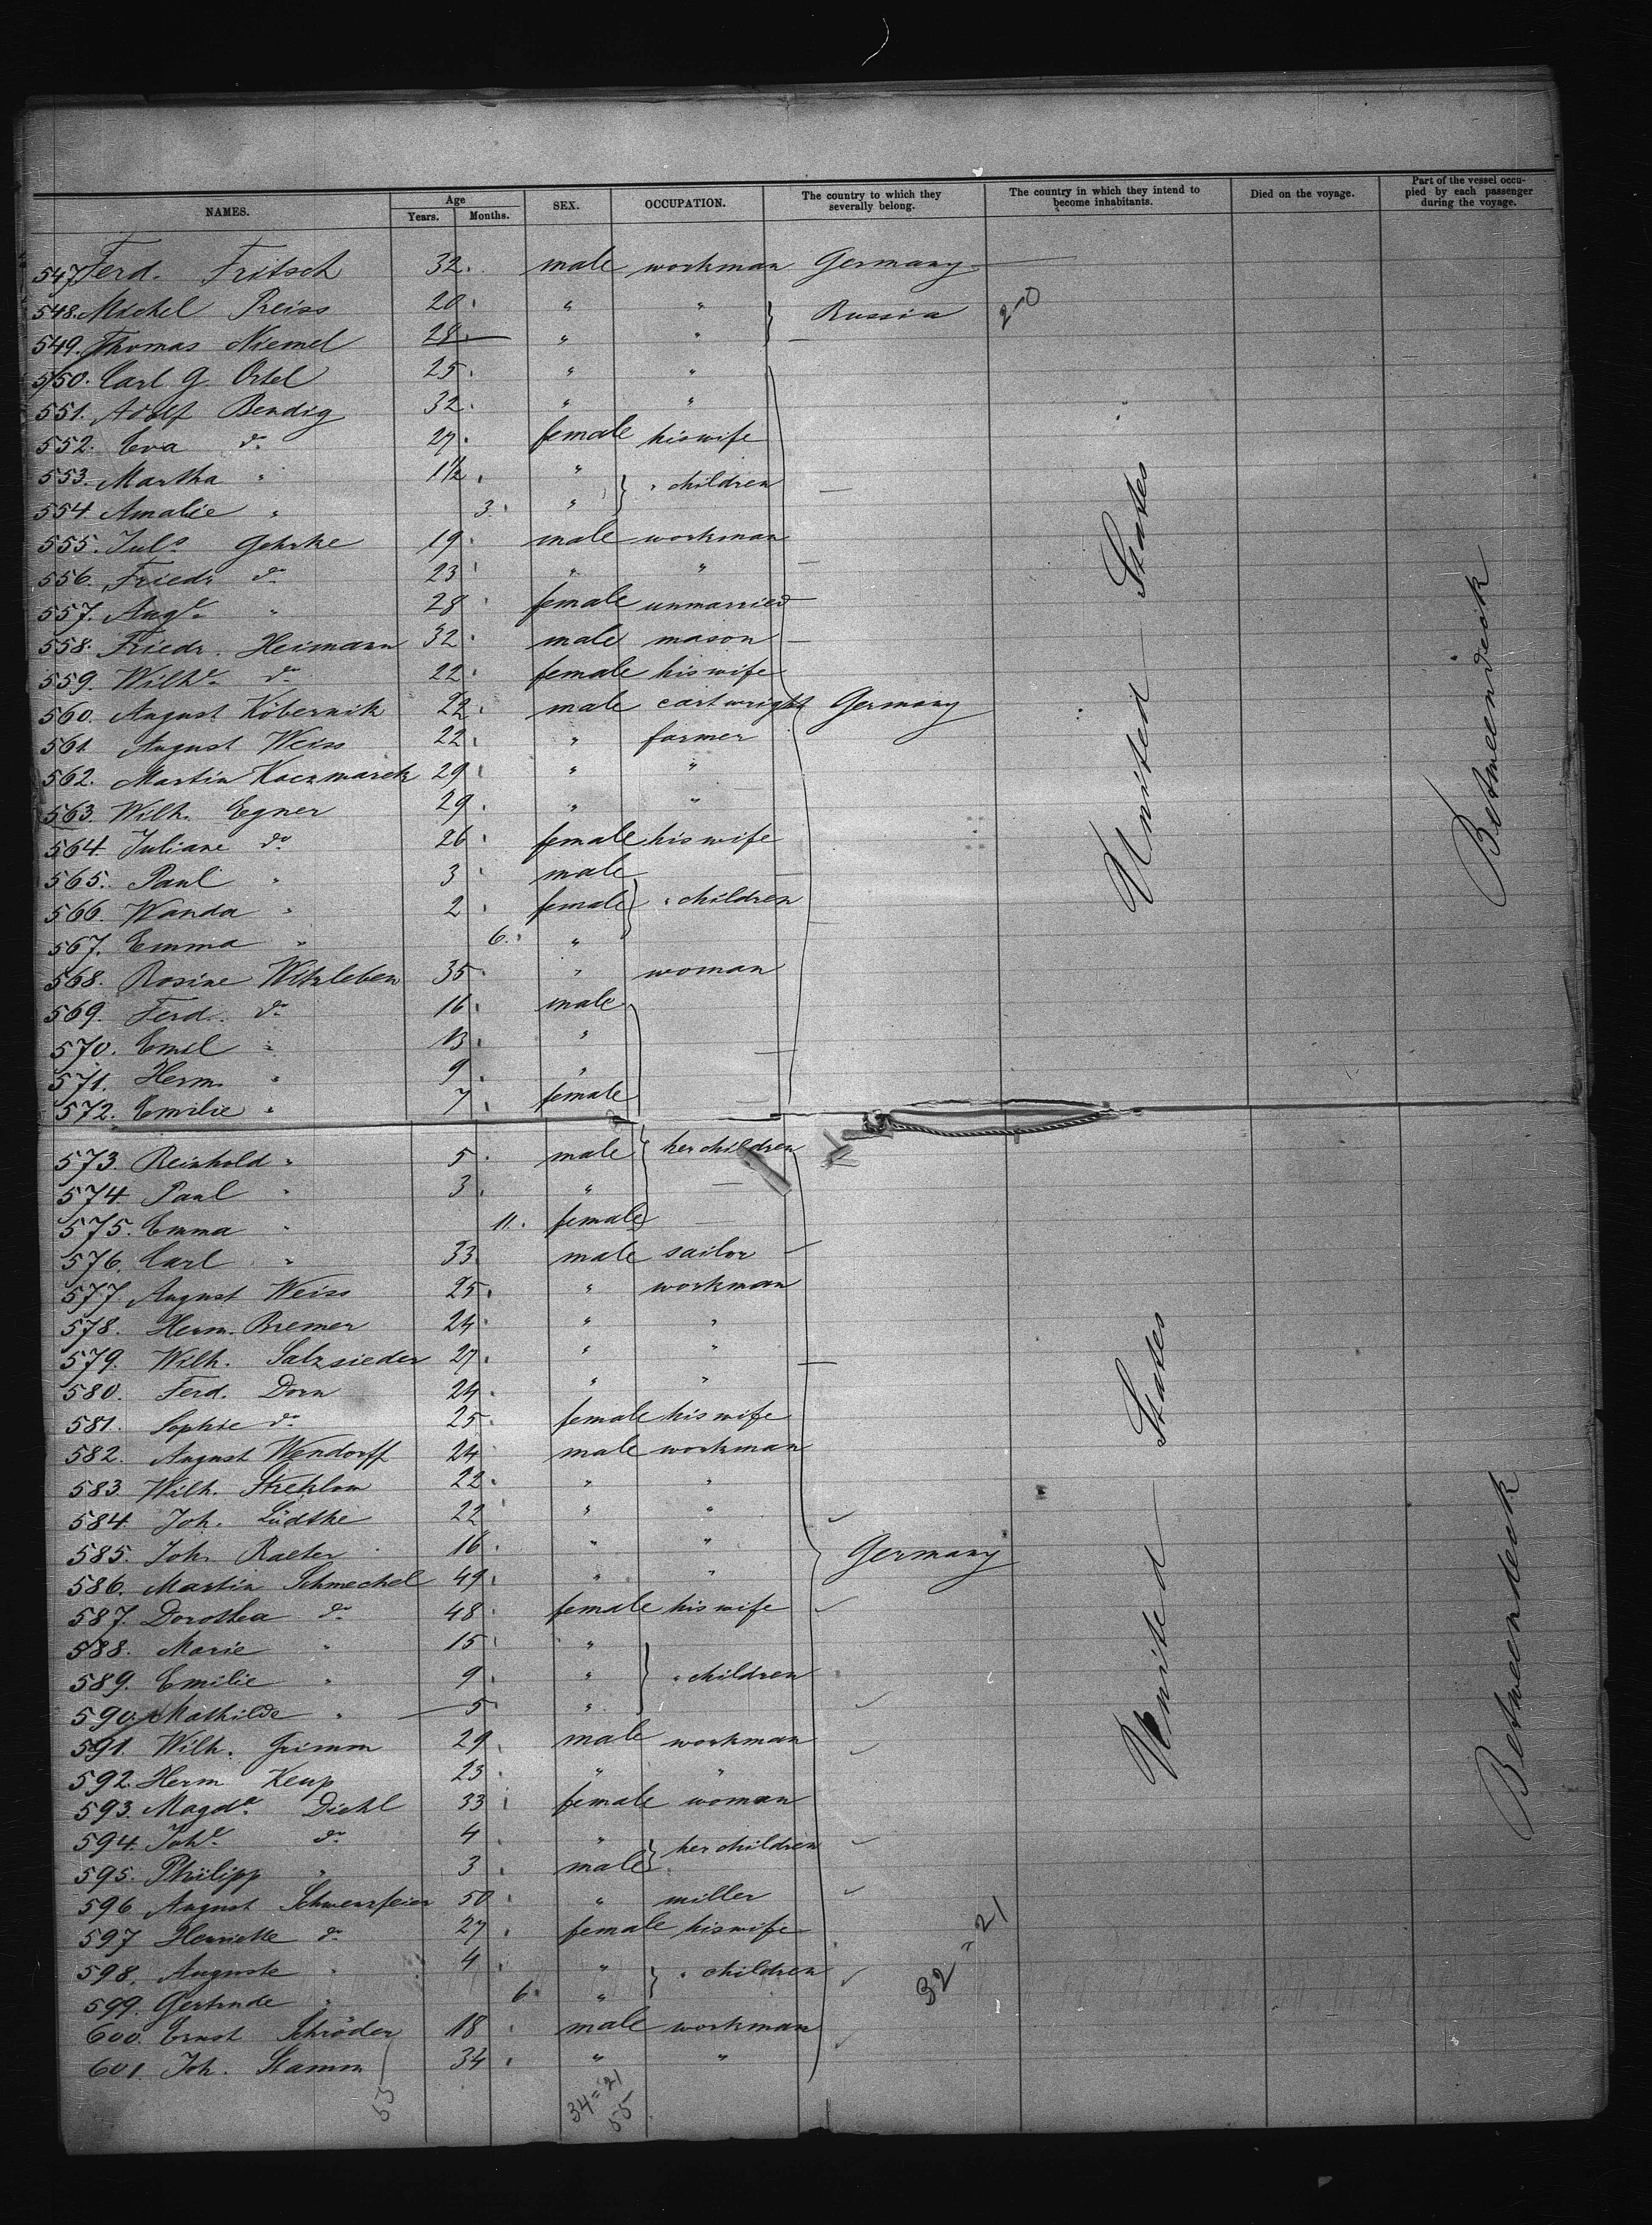 NAMES. Age Years. Months. SEX. OCCUPATION. The country to which they severally belong. The country in which they intend to become inhabitants. Died on the voyage. Part of the vessel occupied by each passenger during the voyage.
547 Ferd. Fritsch 32. male workman Germany
548. Michel Preiss 20. " "
Russia 2-0
549. Thomas Niemel 28. " "
550. Carl G. Ortel 25. " "
551. Adolf Bendig 32. " "
552. Eva do 27. female his wife
553. Martha " 1 1/2. " " children
554. Amalie " 3. "
555. Juls. Gehrke 19. male workman
556. Friedr do 23 " "
557. Auge. " 28 female unmarried
558. Friedr. Heimann 32 male mason
559. Wilhe. do 22. female his wife
560. August Köbernik 22. male cartwright Germany
561. August Weiss 22. " farmer
562. Martin Kaczmarek 29 " "
563. Wilh. Egner 29. " "
564. Juliane do 26. female his wife
565. Paul " 3 male
566. Wanda " 2. female " children
567. Emma " 6. "
568. Rosine Witzleben 35. " woman
569. Ferd. do 16. male
570. Emil " 13. "
571. Herm. " 9. "
572. Emilie " 7. female
United States
Betweendeck
573. Reinhold " 5. male her children
574. Paul " 3. "
575. Emma " 11. female
576. Carl " 33. male sailor
577. August Weiss 25. " workman
578. Herm. Bremer 24. " "
579. Wilh. Salzsieder 27. " "
580. Ferd. Dorn 24. " "
581. Sophie do 25. female his wife
582. August Wendorff 24 male workman
583. Wilh. Strehlow 22. " "
584. Joh. Lüdtke 22 " "
585. Joh. Raeter 16. " " Germany
586. Martin Schmechel 49. " "
587. Dorothea do 48. female his wife
588. Marie " 15 "
589. Emilie " 9. " " children
590. Mathilde " 5. "
591. Wilh. Grimm 29. male workman
592. Herm Keup 23. " "
593. Magda. Diehl 33 female woman
594. Johe. do 4. " her children
595. Philipp " 3. male
596. August 50. " miller
597 Henriette do 27. female his wife
598. Auguste " 4. " " children
599. Gertrude " 6. "
600. Ernst Schröder 18. male workman
601. Joh. Stamm 34. " "
United States
Betweendeck
32=21
55
34=21
55